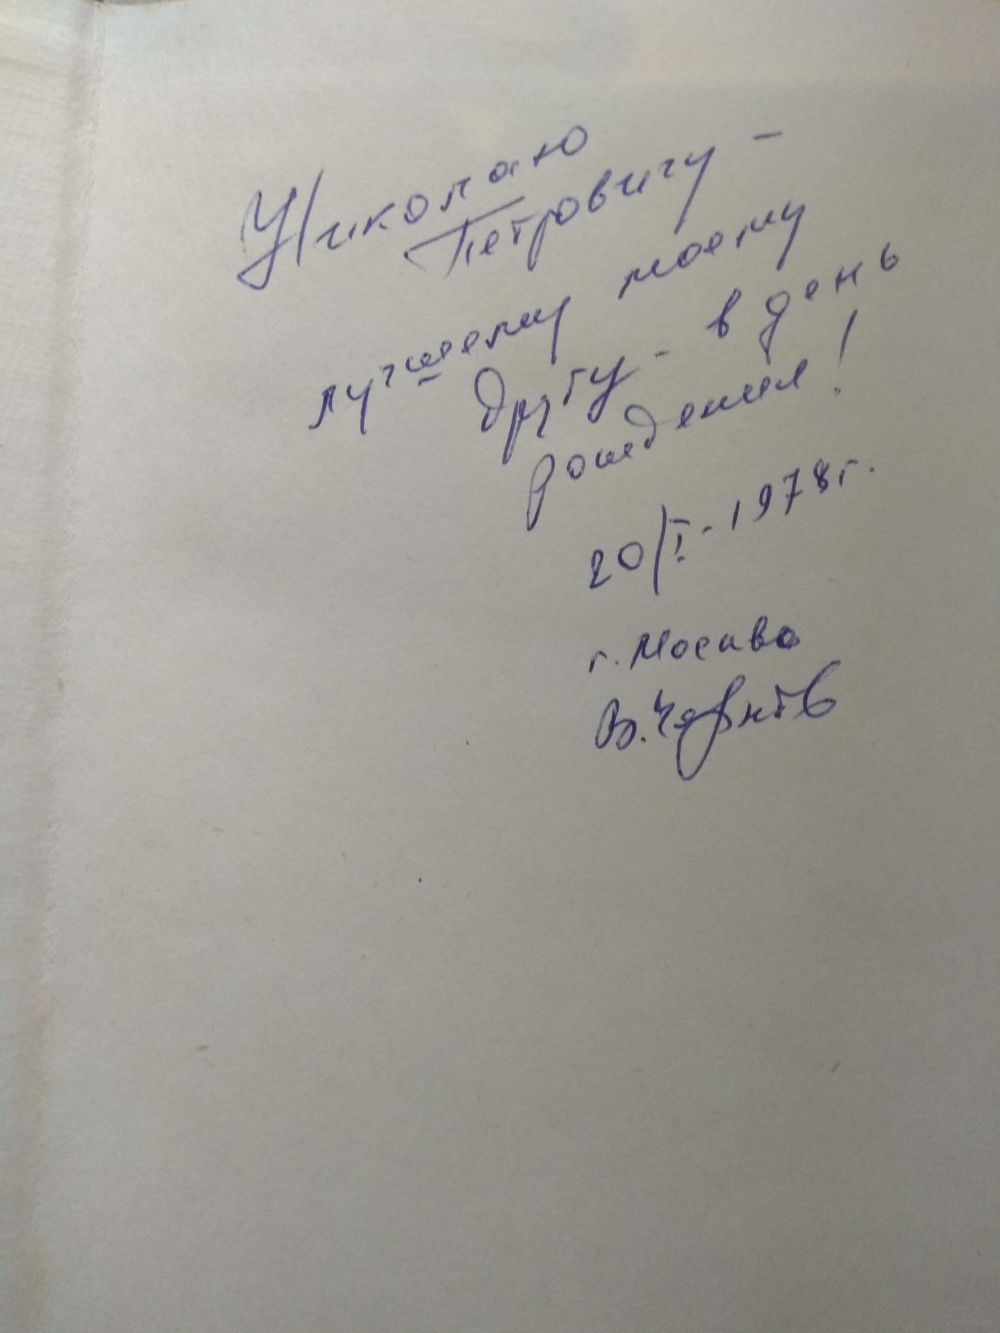 Николаю
Петровичу -
лучшему моему
другу - в день
рождения!
20/I - 1978 г.
г. Москва
В.